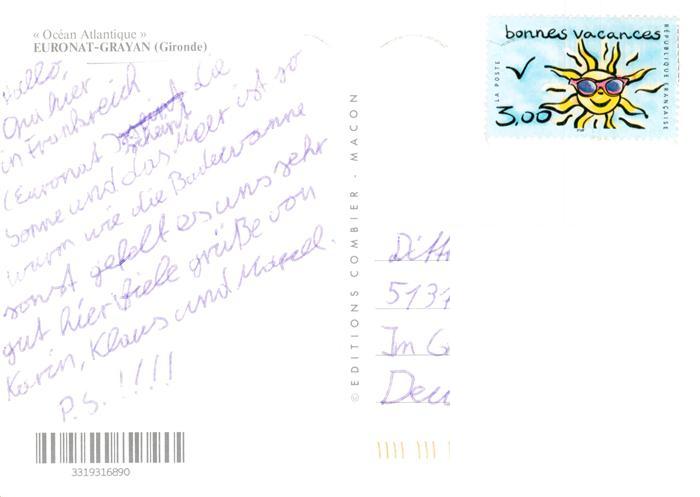 « Océan Atlantique »
EURONAT-GRAYAN (Gironde)
Hallo,
hier
in Frankreich
(Euronat scheint die
Sonne und das Meer ist so
warm wie die Badewanne
sonst gefält es uns sehr
gut hier fiele grüße von
Karin, Klaus und Marcel.
P.S. !!!!
3319316890
© EDITIONS COMBIER - MACON
bonnes vacances
LA POSTE
RÉPUBLIQUE FRANÇAISE
3,00
Ditt
5131
Im G
Deu